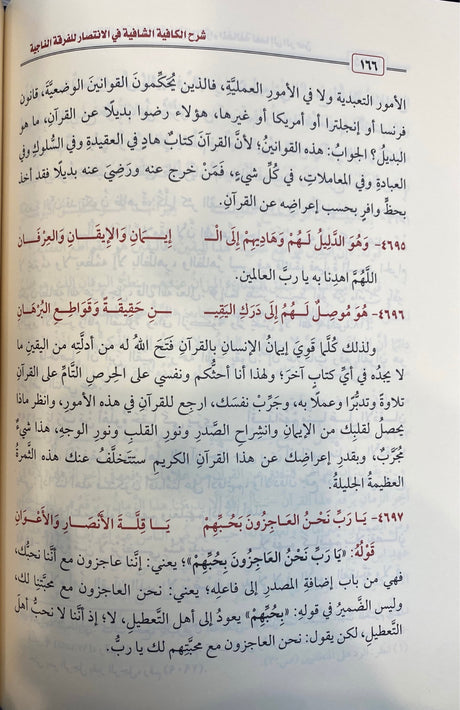 شرح الكافية الشافية في الانتصار للفرقة الناجية
١٦٦
الأمور التعبدية ولا في الأمورِ العمليَّةِ، فالذين يُحَكِّمونَ القوانينَ الوضعيَّةَ، قانون
فرنسا أو إنجلترا أو أمريكا أو غيرها، هؤلاء رضوا بديلًا عن القرآنِ، ما هو
البديلُ؟ الجوابُ: هذه القوانينُ؛ لأنَّ القرآنَ كتابٌ هادٍ في العقيدةِ وفي السُّلوكِ وفي
العبادةِ وفي المعاملاتِ، في كُلِّ شيءٍ، فَمَنْ خرج عنه ورَضِيَ عنه بديلًا فقد أخذ
بحظٍّ وافرٍ بحسب إعراضِه عن القرآنِ.
٤٦٩٥- وَهُوَ الدَّلِيلُ لَهُمْ وَهَادِيهِمْ إِلَى الْـ إِيمَانِ وَالْإِيقَانِ وَالعِرْفَانِ
اللَّهُمَّ اهدِنا به يا ربَّ العالمين.
٤٦٩٦- هُوَ مُوصِلٌ لَهُمُ إِلَى دَرَكِ اليَقِيـ ـنِ حَقِيقَةً وَقَوَاطِعِ البُرْهَانِ
ولذلك كُلَّما قَوِيَ إيمانُ الإنسانِ بالقرآنِ فتَحَ اللهُ له من أدلَّتِه من اليقينِ ما
لا يجدُه في أيِّ كتابٍ آخرَ؛ ولهذا أنا أحثُّكم ونفسي على الحِرصِ التَّامِّ على القرآنِ
تلاوةً وتدبُّرًا وعملًا به، وجَرِّبْ نفسَك، ارجع للقرآنِ في هذه الأمورِ، وانظر ماذا
يحصلُ لقلبِك من الإيمانِ وانشراحِ الصَّدرِ ونورِ القلبِ ونورِ الوجهِ، هذا شيءٌ
مُجرَّبٌ، وبقدرِ إعراضِك عن هذا القرآنِ الكريم ستتخلَّفُ عنك هذه الثَّمرةُ
العظيمةُ الجليلةُ.
٤٦٩٧- يَا رَبِّ نَحْنُ العَاجِزُونَ بِحُبِّهِمْ يَا قِلَّةَ الْأَنْصَارِ وَالْأَعْوَانِ
قَوْلُهُ: «يَا رَبِّ نَحْنُ العَاجِزُونَ بِحُبِّهِمْ»؛ يعني: إنَّنا عاجزون مع أنَّنا نحبُّك،
فهي من باب إضافةِ المصدرِ إلى فاعلِه؛ يعني: نحن العاجزون مع محبَّتِنا لك،
وليس الضَّميرُ في قولِه: «بِحُبِّهِمْ» يعودُ إلى أهل التَّعطيلِ، لا؛ إذ أنَّنا لا نحبُّ أهلَ
التَّعطيلِ، لكن يقول: نحن العاجزون مع محبَّتِهم لك يا ربُّ.